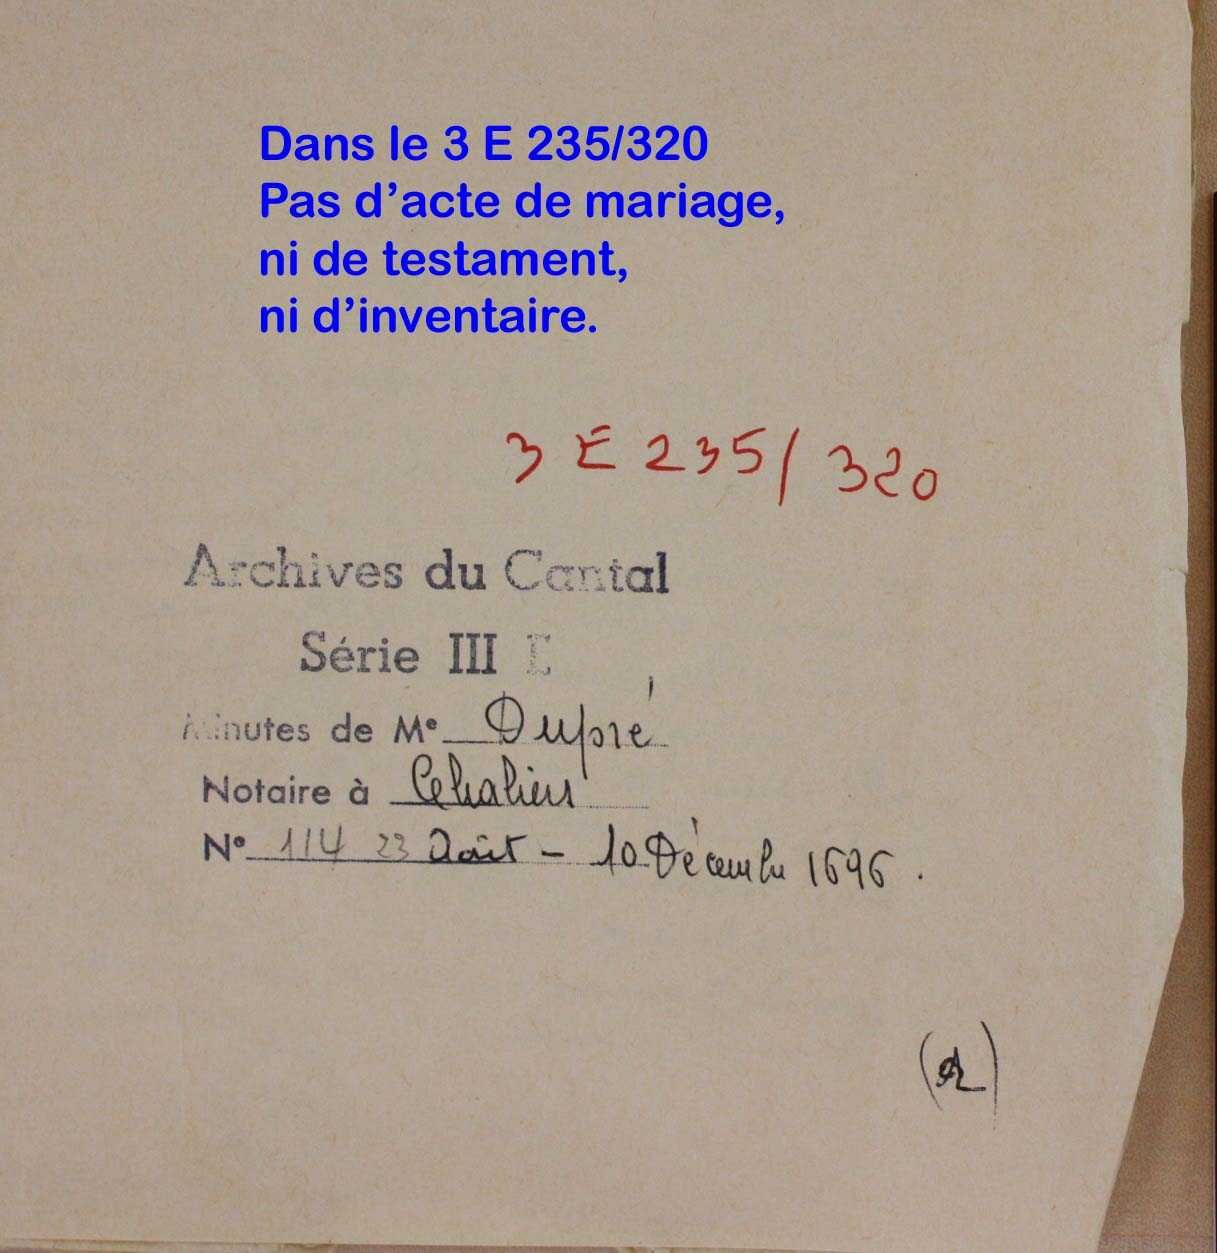 Dans le 3 E 235/320
Pas d’acte de mariage,
ni de testament,
ni d’inventaire.
3 E 235/320
Archives du Cantal
Série III E
Minutes de Me Dupré
Notaire à
No 114 23 Août - 10 Décembre 1696.